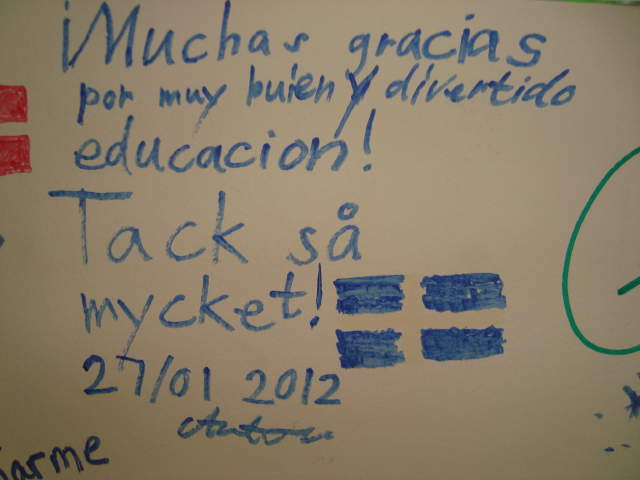 ¡Muchas gracias
por muy buien y divertido
educacion!
Tack så
mycket!
27/01 2012
Anton
arme